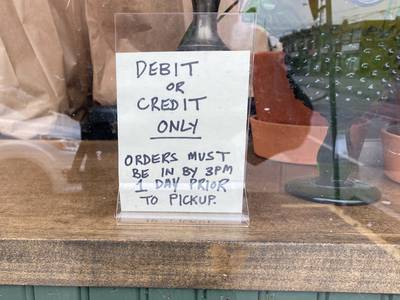 DEBIT
OR
CREDIT
ONLY
ORDERS MUST
BE IN BY 3PM
1 DAY PRIOR
TO PICKUP.